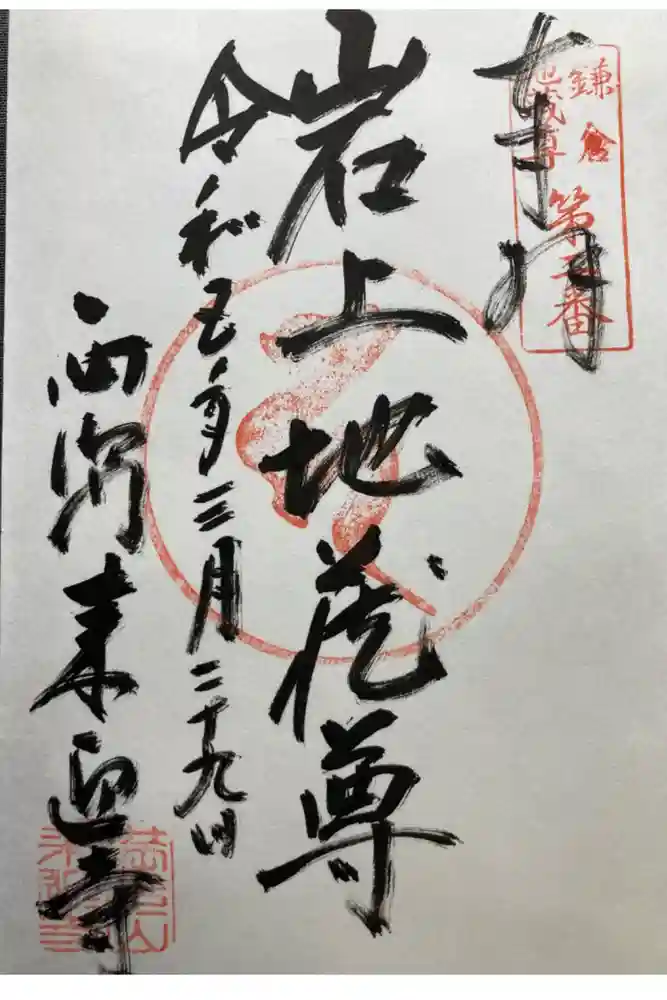 鎌倉
地蔵尊
第二番
岩上地蔵尊
令和五年三月二十九日
西御門来迎寺